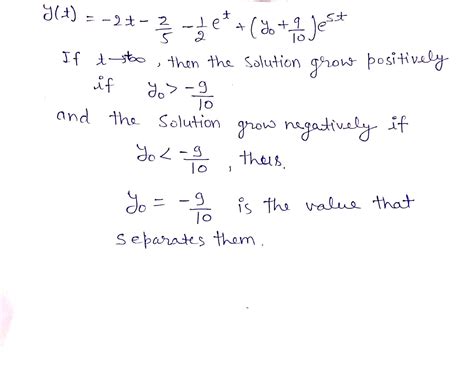 y(t) = -2t - 2/5 - 1/2 e^t + (y₀ + 9/10) e^5t
If t→∞, then the solution grow positively
if y₀ > -9/10
and the solution grow negatively if
y₀ < -9/10, thus.
y₀ = -9/10 is the value that
separates them.